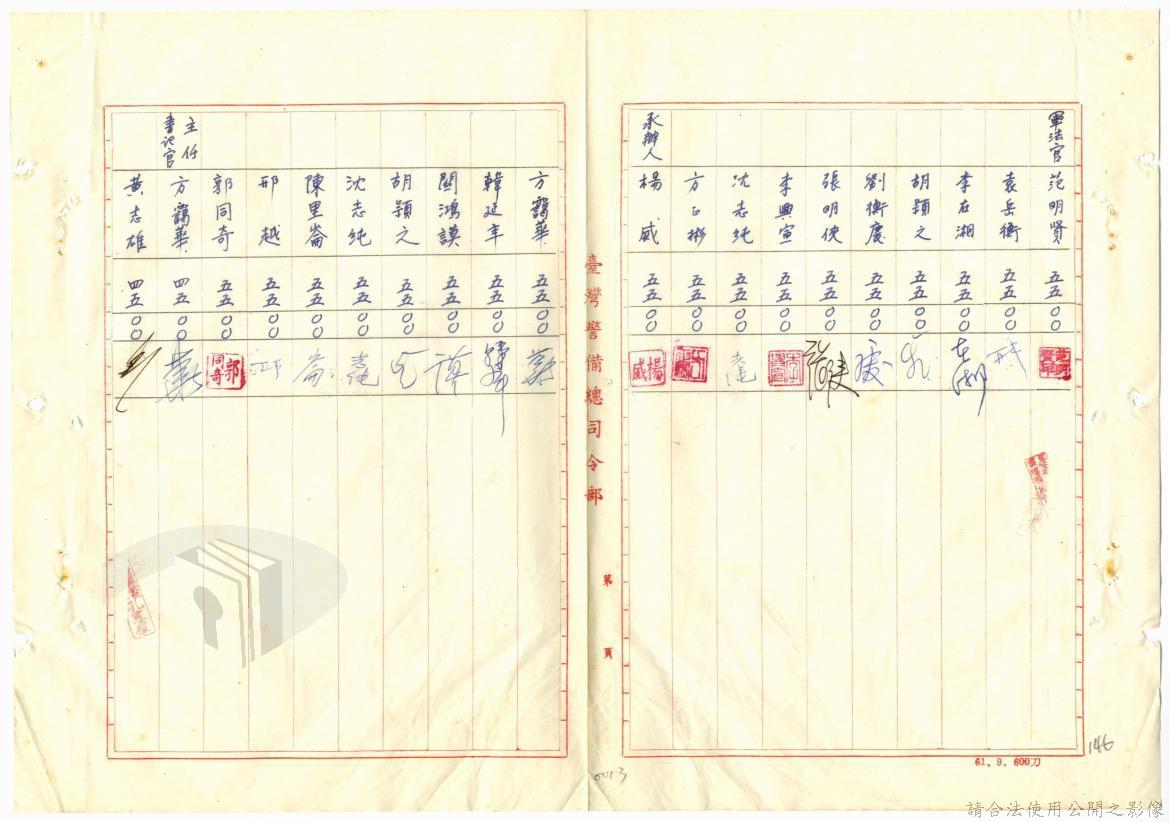 軍法官
范明賢 五五〇〇
袁岳衡 五五〇〇
李在湘 五五〇〇 在湘
胡穎之 五五〇〇
劉衡慶 五五〇〇 慶
張明俠 五五〇〇
李興宣 五五〇〇
沈志純 五五〇〇
方正彬 五五〇〇
承辦人
楊威 五五〇〇 楊威
臺灣警備總司令部
第 頁
方靄華 五五〇〇
韓延年 五五〇〇
關鴻謨 五五〇〇
胡穎之 五五〇〇
沈志純 五五〇〇
陳里崙 五五〇〇 崙
邢越 五五〇〇
郭同奇 五五〇〇 郭同奇
主任書記官
方靄華 四五〇〇
黃志雄 四五〇〇
146
0013
61. 9. 600刀
請合法使用公開之影像